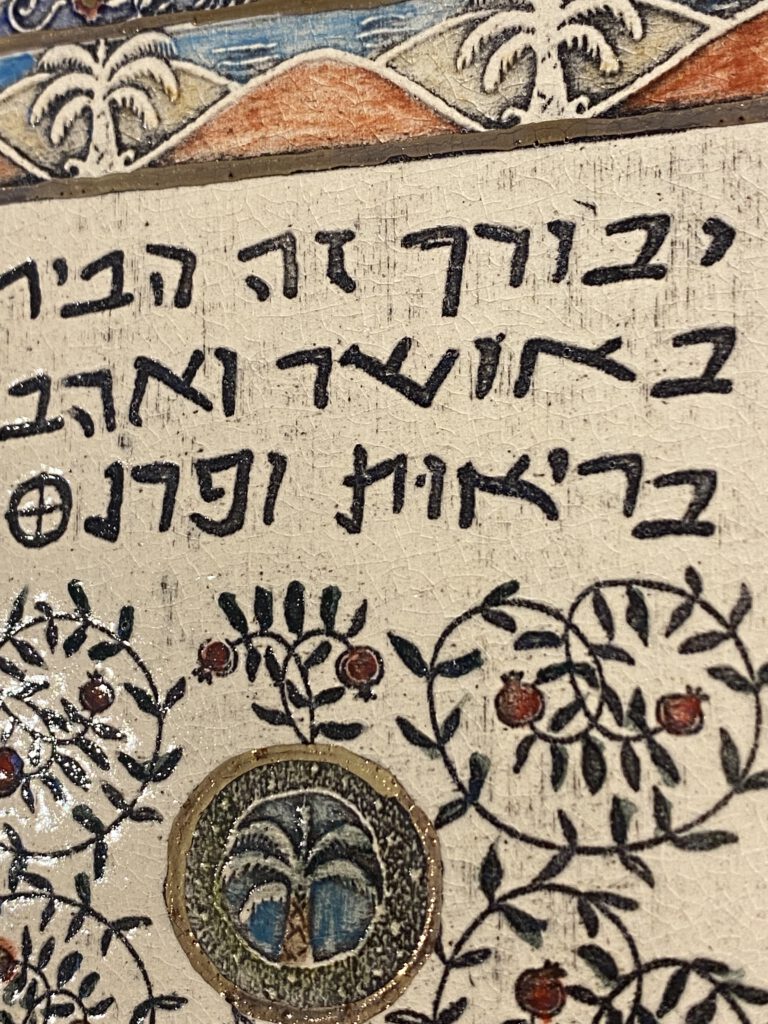 יבורך זה הבית
באושר ואהב
בריאות ופרנס